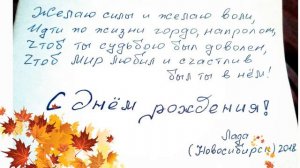 Желаю силы и желаю воли,
Идти по жизни гордо, напролом,
Чтоб ты судьбою был доволен,
Чтоб Мир любил и счастлив
был ты в нём!
С днём рождения!
Лада
(Новосибирск) 2018